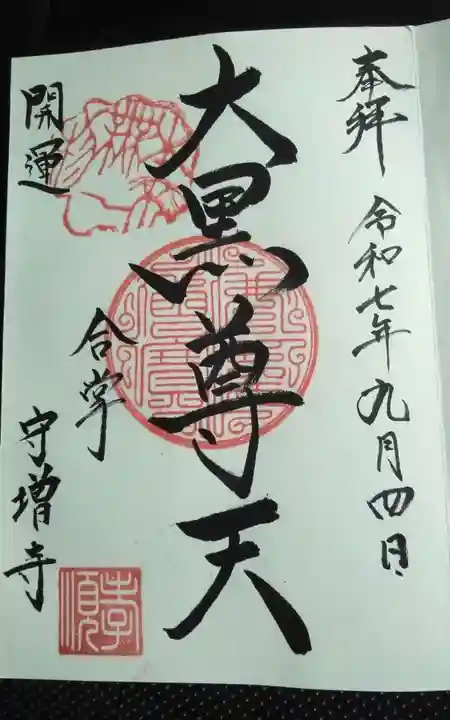 奉拝
令和七年九月四日
大黒尊天
開運
合掌
守増寺
孝順